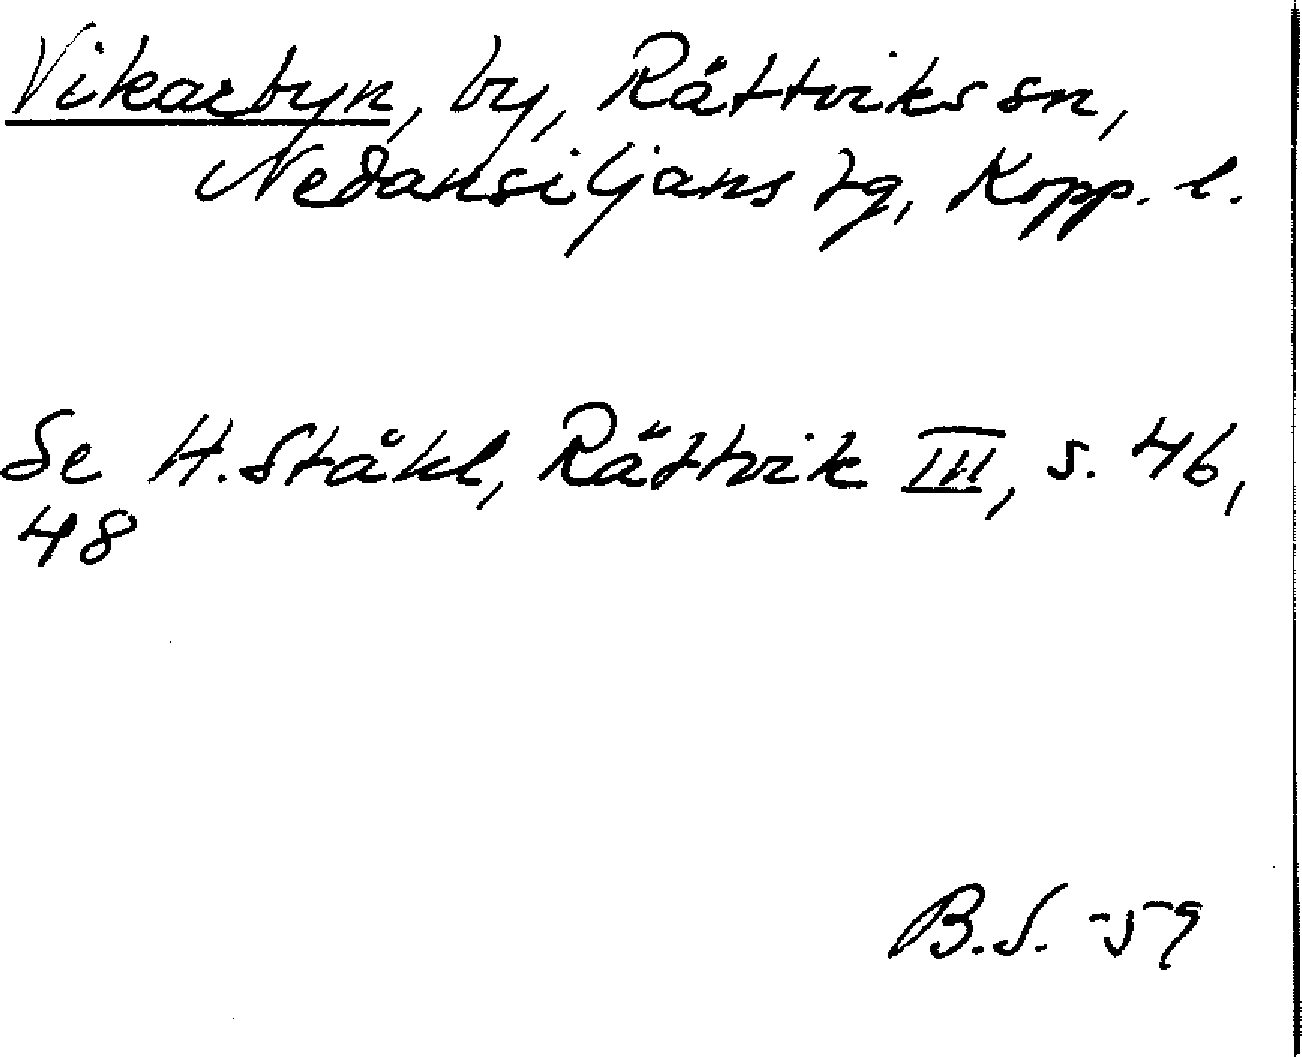 Vikarbyn, by, Rättviks sn,
Nedansiljans tg, Kopp. l.
Se H. Ståhl, Rättvik III, s. 46,
48
B.S. -59